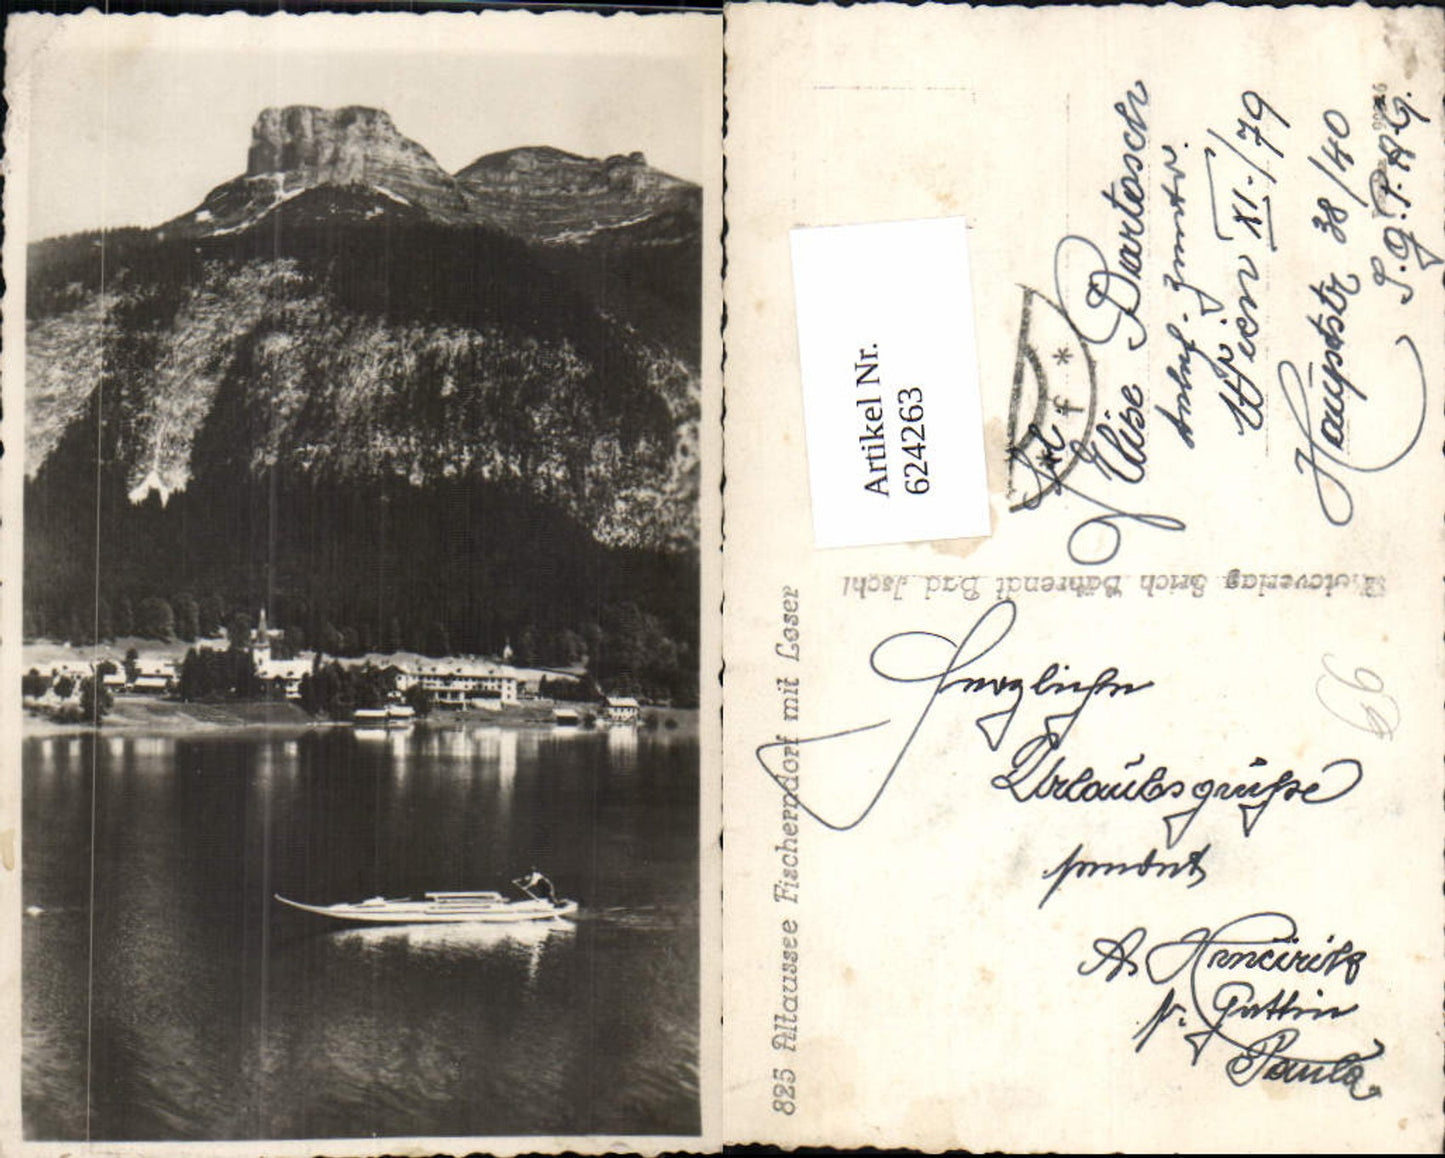 825 Altaussee Fischerndorf mit Loser
Photoverlag Erich Bährendt Bad Ischl
Artikel Nr.
624263
Herzliche
Urlaubsgrüße
sendet
u. Gattin
Paula
99
Elise Bartosch
Wien XI./79
Hauptstr 38/40